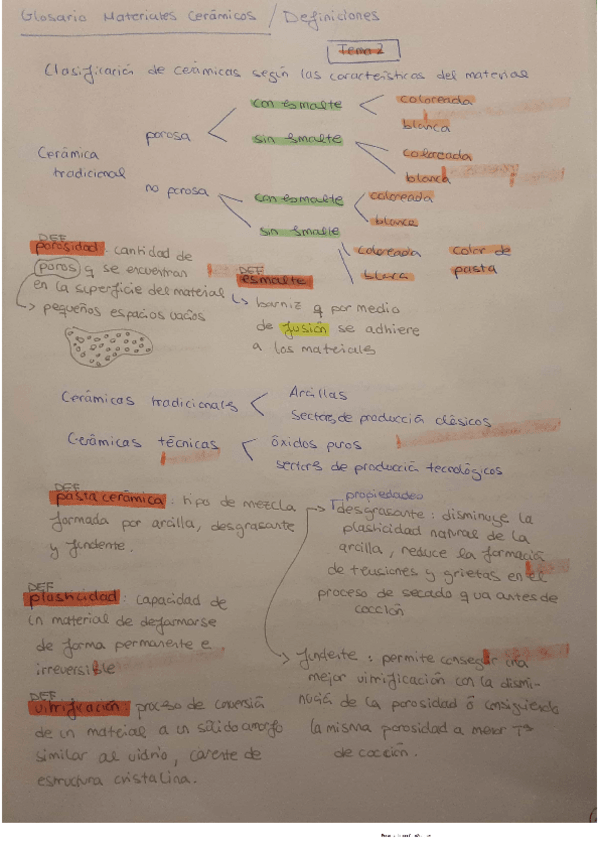 Glosario Materiales Cerámicos / Definiciones
Tema 2
Clasificación de cerámicas según las características del material
Cerámica tradicional
porosa
con esmalte
coloreada
blanca
sin esmalte
coloreada
blanca
no porosa
con esmalte
coloreada
blanca
sin esmalte
coloreada
blanca
color de
pasta
DEF
porosidad: cantidad de
poros q se encuentran
en la superficie del material
pequeños espacios vacíos
DEF
esmalte
barniz q por medio
de fusión se adhiere
a los materiales
Cerámicas tradicionales
Arcillas
sectores de producción clásicos
Cerámicas técnicas
óxidos puros
sectores de producción tecnológicos
DEF
pasta cerámica: tipo de mezcla
formada por arcilla, desgrasante
y fundente.
propiedades
desgrasante: disminuye la
plasticidad natural de la
arcilla, reduce la formación
de tensiones y grietas en el
proceso de secado q va antes de
cocción
DEF
plasticidad: capacidad de
un material de deformarse
de forma permanente e
irreversible
fundente: permite conseguir una
mejor vitrificación con la dismi-
nución de la porosidad ó consiguiendo
la misma porosidad a menor Tª
de cocción.
DEF
vitrificación: proceso de conversión
de un material a un sólido amorfo
similar al vidrio, carente de
estructura cristalina.